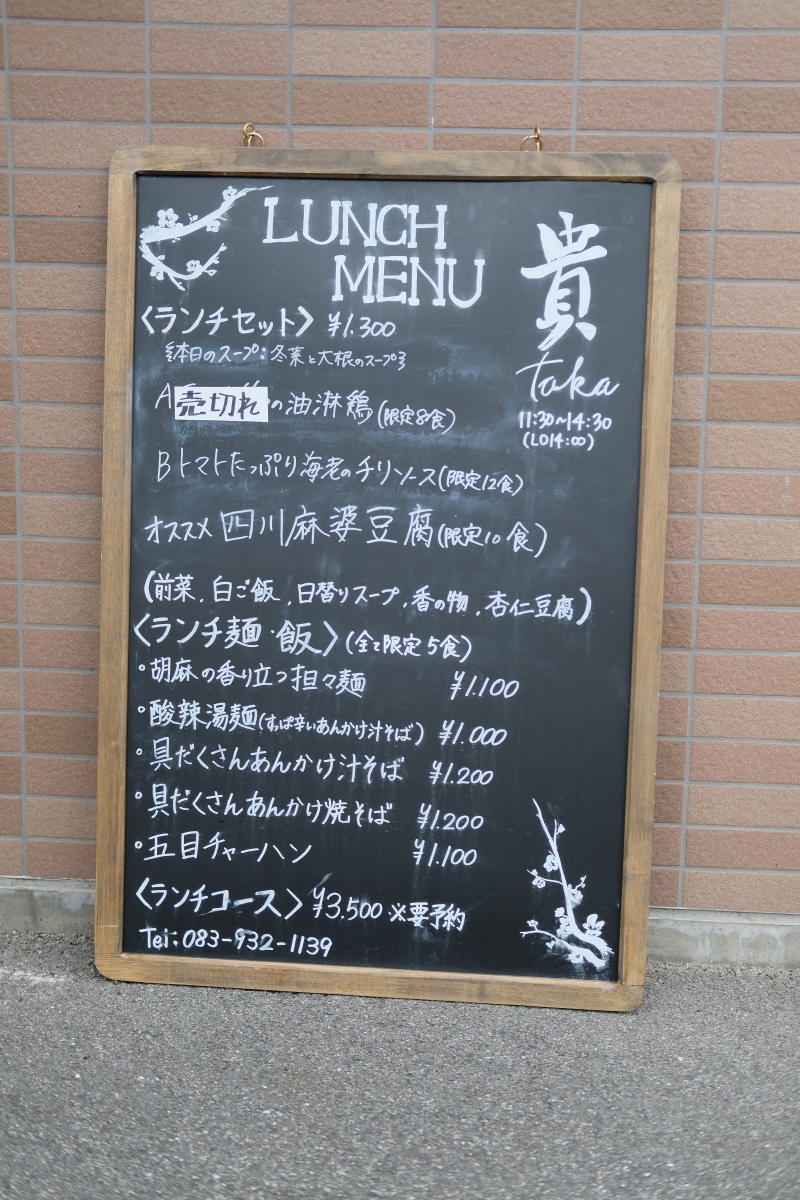 LUNCH
MENU
貴
taka
11:30~14:30
(LO14:00)
〈ランチセット〉 ¥1.300
本日のスープ:冬菜と大根のスープ
A 売切れ の油淋鶏(限定8食)
B トマトたっぷり海老のチリソース(限定12食)
オススメ 四川麻婆豆腐(限定10食)
(前菜、白ご飯、日替りスープ、香の物、杏仁豆腐)
〈ランチ麺・飯〉(全て限定5食)
・胡麻の香り立つ担々麺 ¥1.100
・酸辣湯麺(すっぱ辛いあんかけ汁そば) ¥1.000
・具だくさんあんかけ汁そば ¥1.200
・具だくさんあんかけ焼そば ¥1.200
・五目チャーハン ¥1.100
〈ランチコース〉¥3.500 ※要予約
Tel:083-932-1139